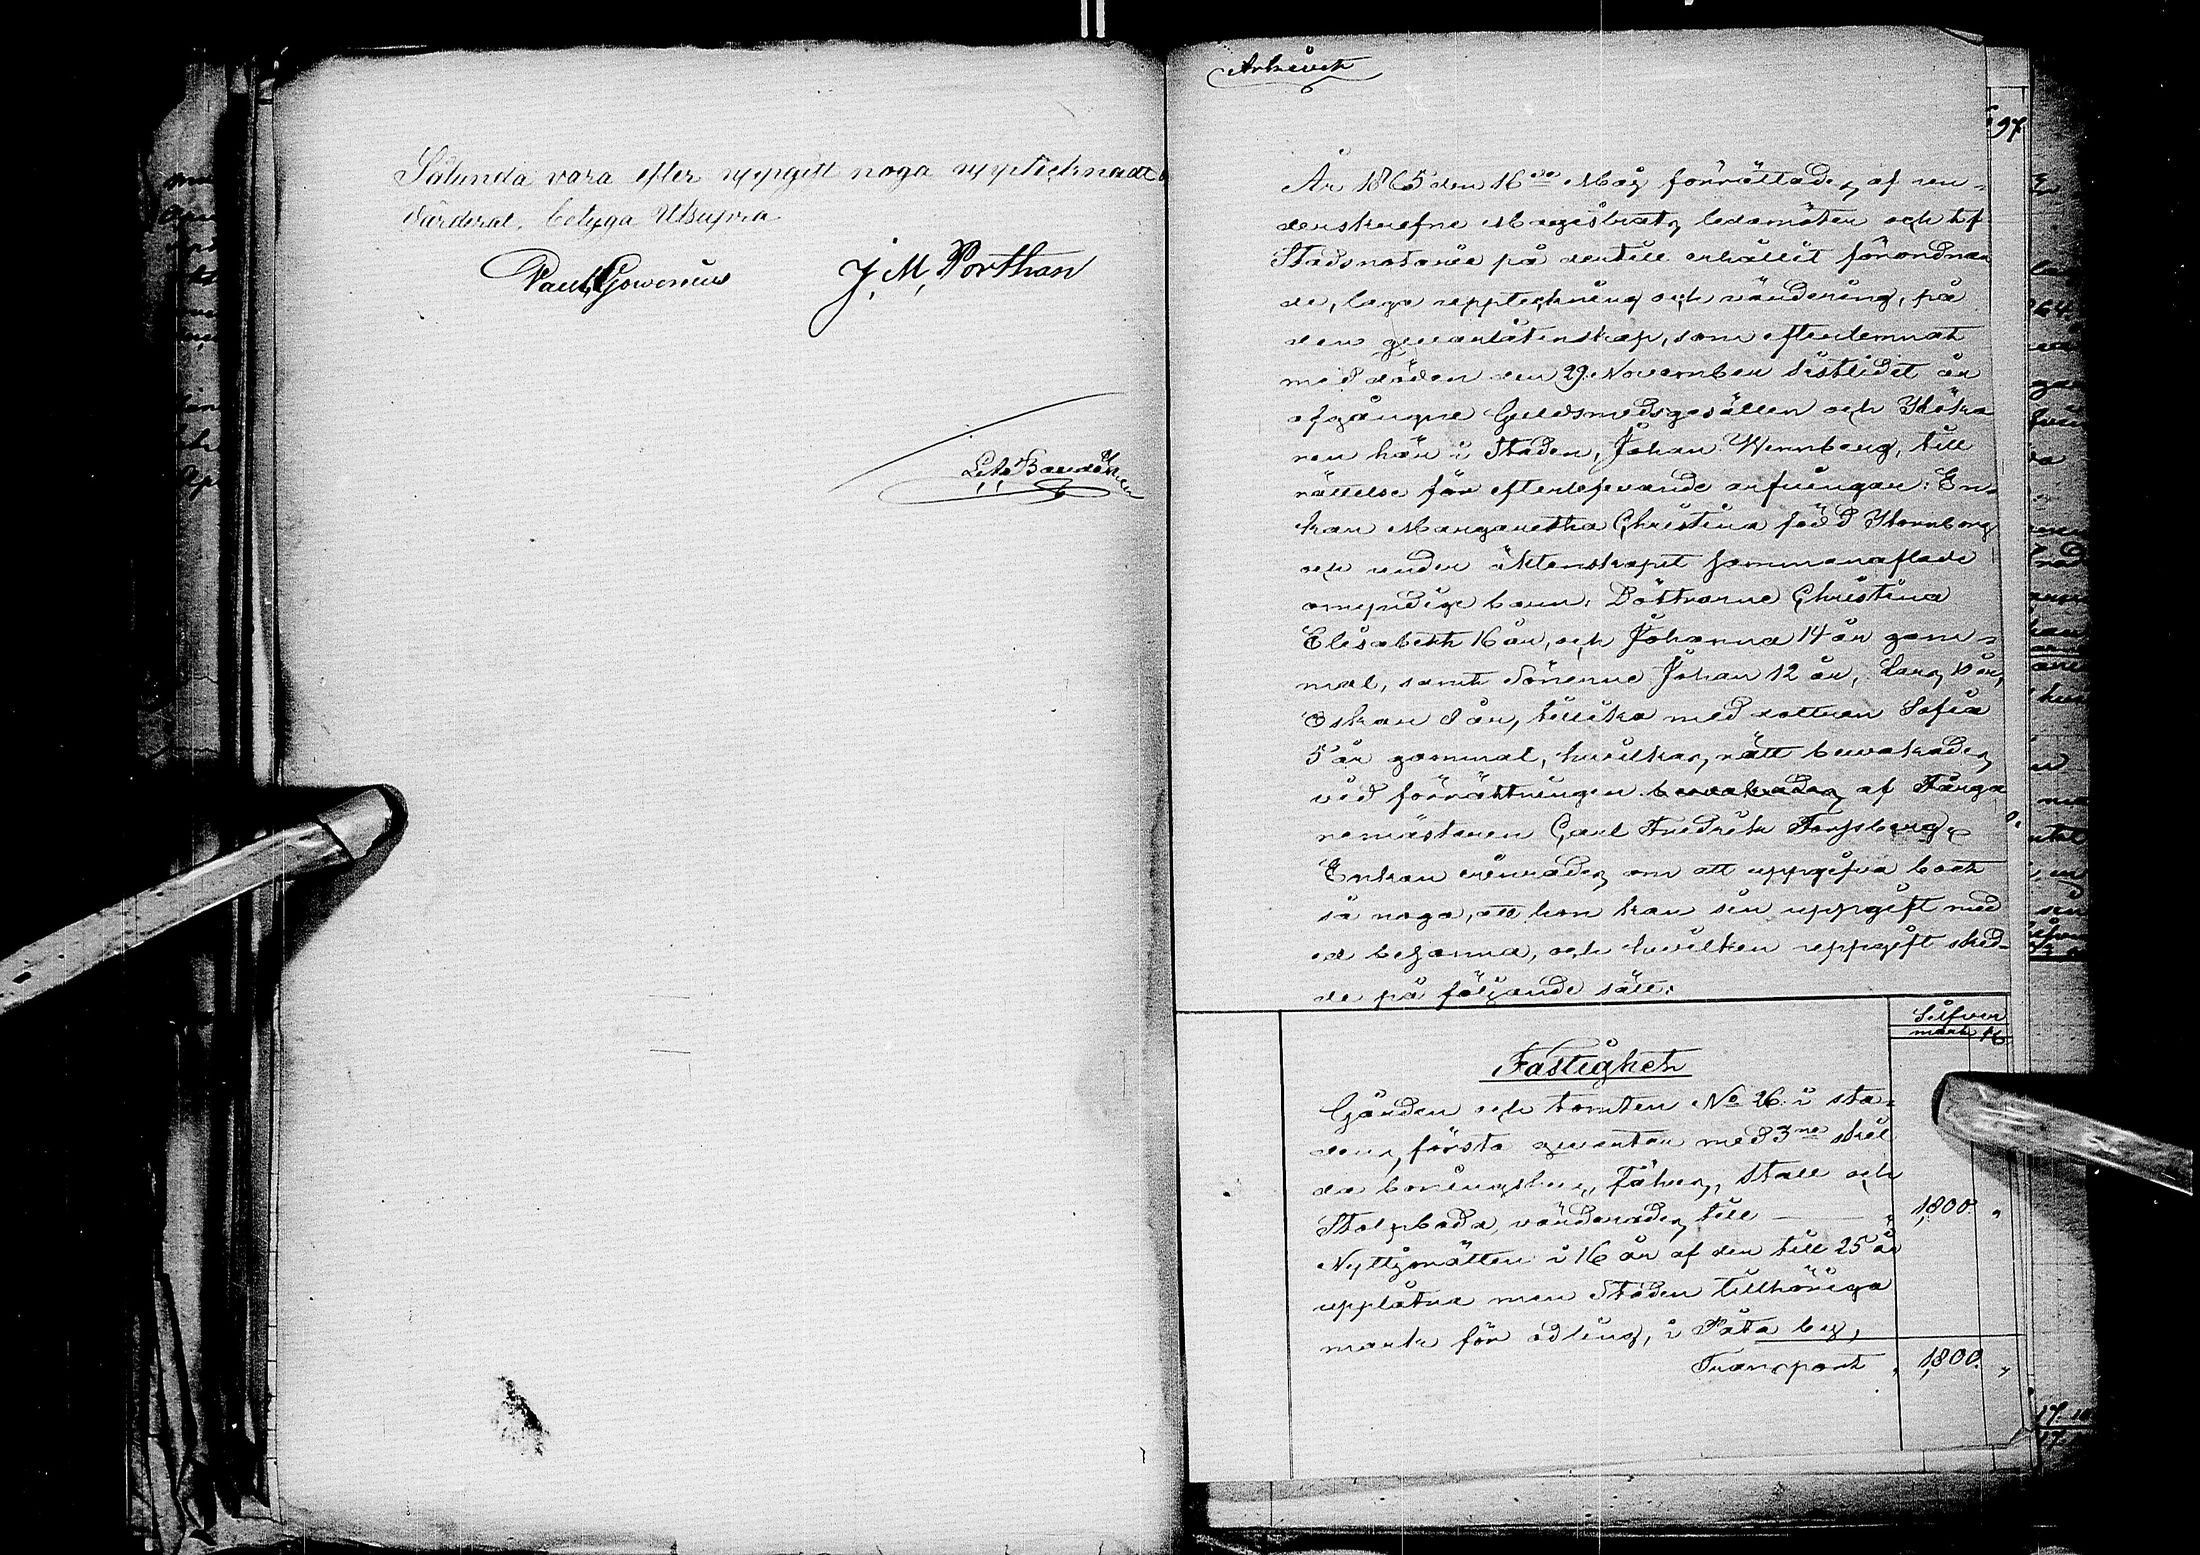 Sålunda vara efter uppgift noga upptecknadt o
värderat, betyga Utsupra
Paul Gowenius
J. M. Porthan
Arkivet
97.
År 1865 den 16de Maj förrättades af un-
derskrefne Magistrats ledamöter och tf
Stadsnotarie på dertill erhållit förordnan
de, laga uppteckning och värdering, på
den qvarlåtenskap, som efterlemnat
med döden den 29. November sistlidet år
afgångne Guldsmedsgesällen och Höka
ren här i Staden, Johan Wennberg, till
rättelse för efterlefvande arfvingar: En-
kan Margaretha Christina född Stornberg
och under äktenskapet sammanaflade
omyndige barn: Döttrarne Christina
Elisabeth 16 år, och Johanna 14 år gam-
mal, samt Sönerne Johan 12 år, Lars, 10 år,
Oskar 8 år, tillika med dottren Sofia
5 år gammal, hvilkas rätt bevakades
vid förrättningen bevakades af Färga
remästaren Carl Fredrik Forssberg.
Enkan erinrades om att uppgifva boet
så noga, att hon kan sin uppgift med
ed bejanna, och hvilken uppgift sked-
de på följande sätt:
Silfver
mark
Fastighet
Gården och tomten No 26. i sta-
dens första qvarter med 3ne skil
da boningshus, Fähus, Stall och
Stolpboda, värderades till 1,800. "
Nyttjorätten i 16 år af den till 25 år
upplåtna men Staden tillhöriga
mark för odling, i Pata by,
Transport 1,800. "